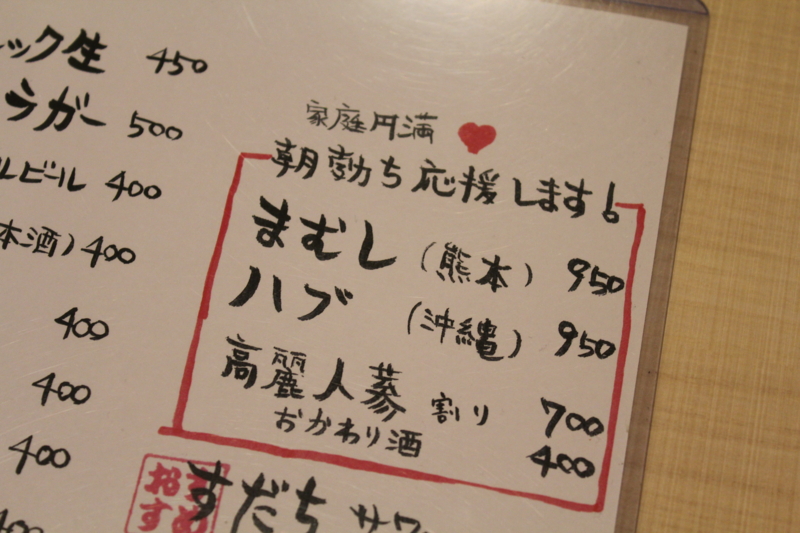 ック生 450
ラガー 500
ルビール 400
本酒) 400
400
400
400
400
家庭円満
朝勃ち応援します!
まむし (熊本) 950
ハブ (沖縄) 950
高麗人蔘 割り 700
おかわり酒 400
おすすめ
すだちサワ